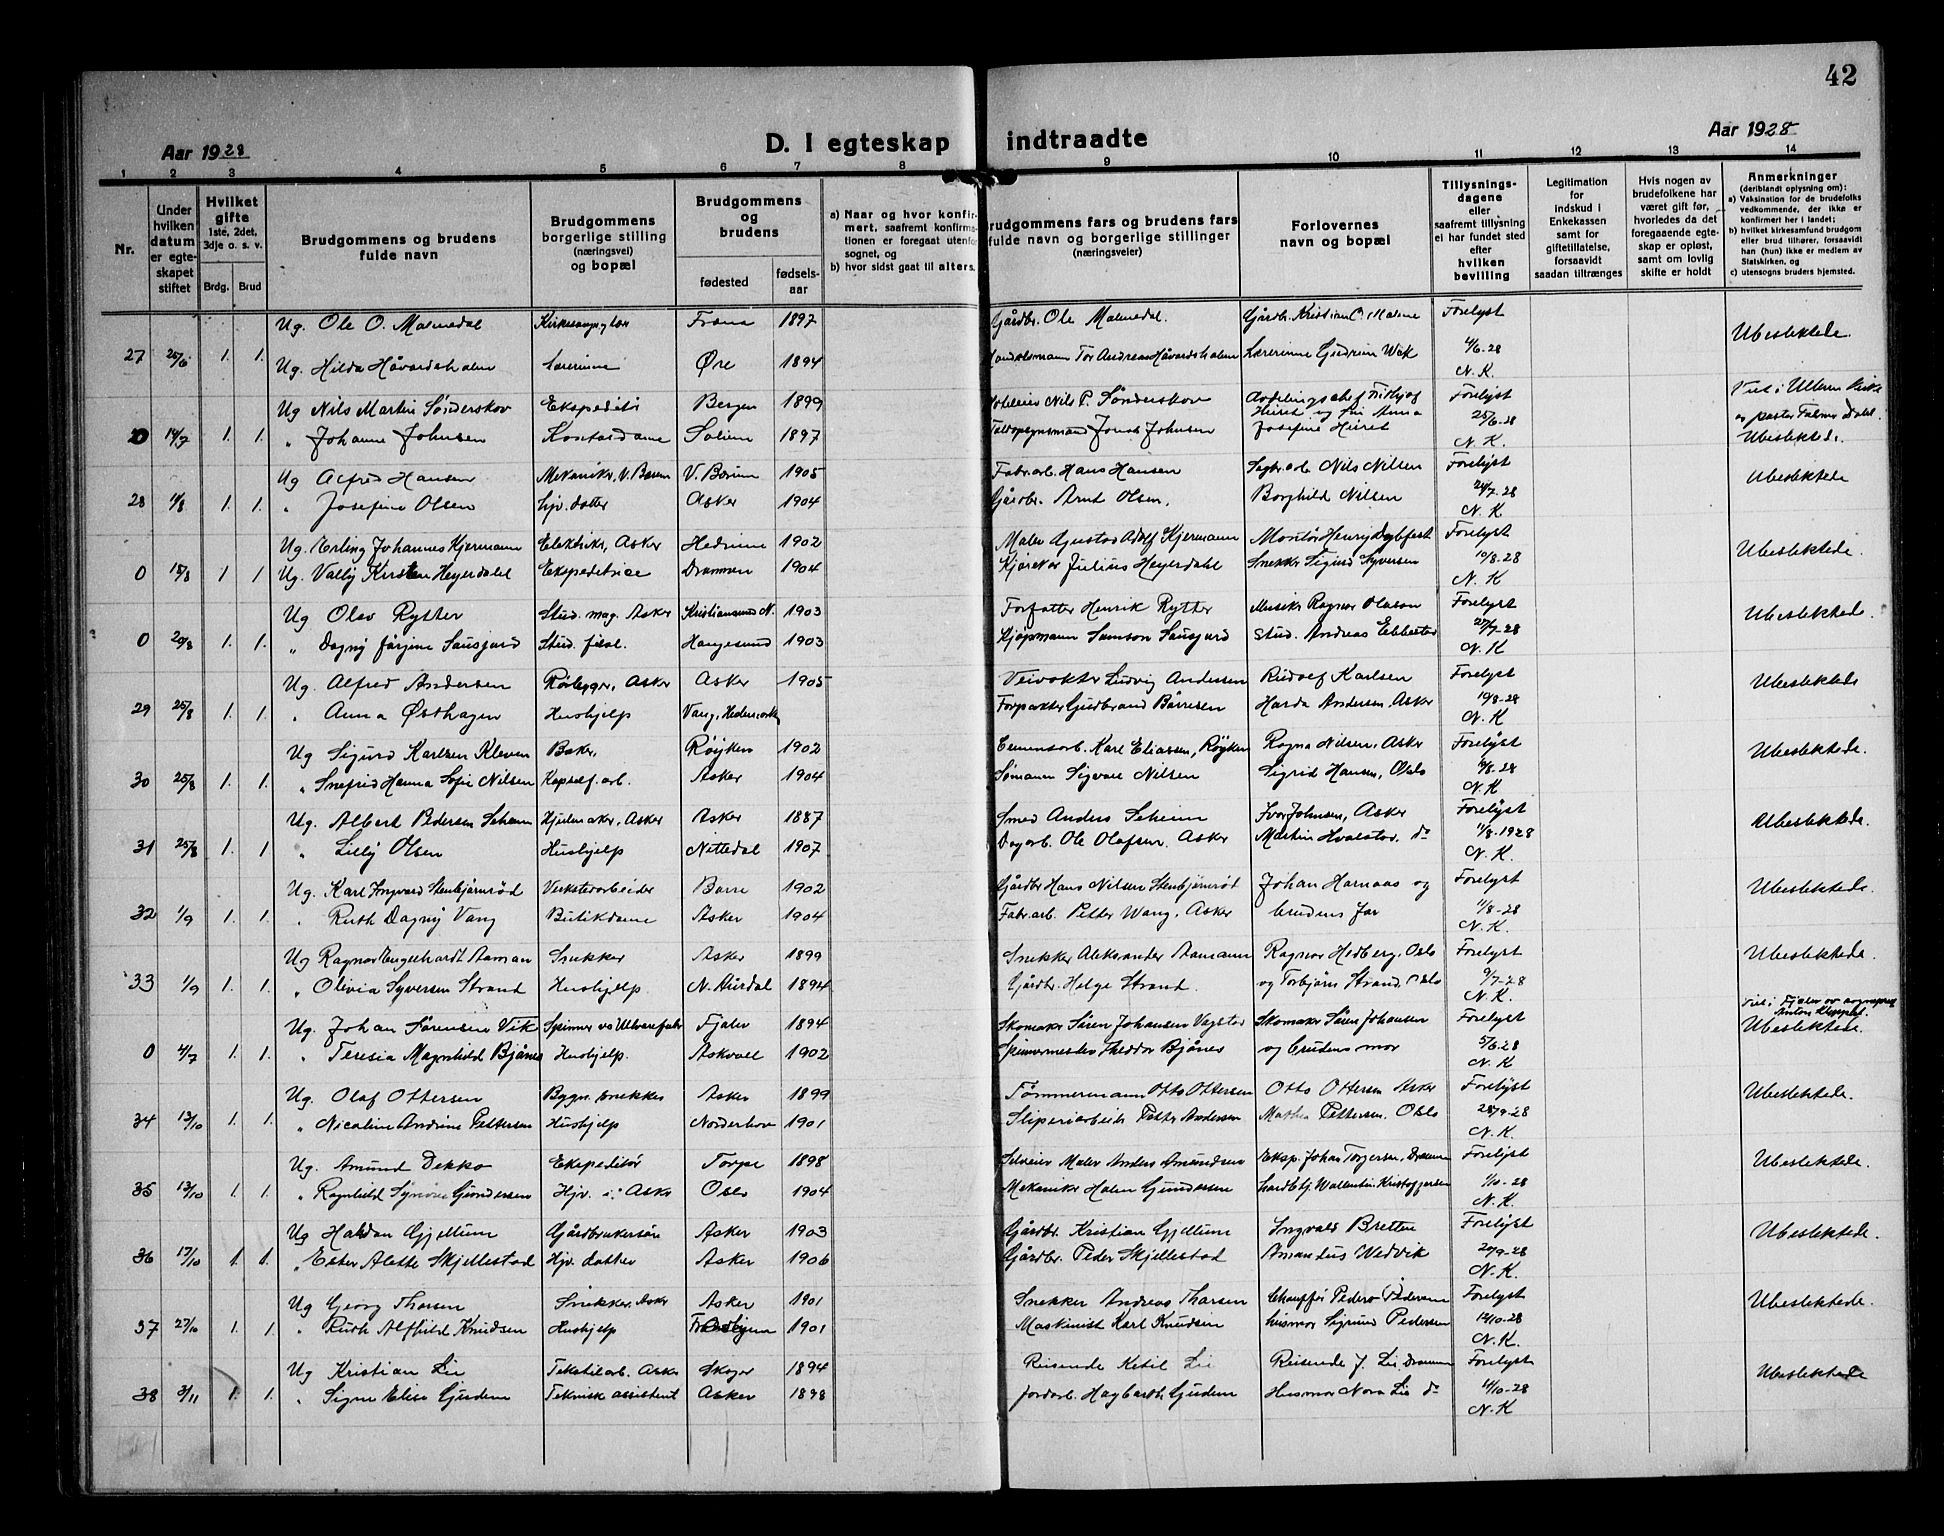 42
Aar 1928
D. I egteskap indtraadte
Aar 1928
1 2 3 4 5 6 7 8 9 10 11 12 13 14
Nr.
Under hvilken datum er egteskapet stiftet
Hvilket gifte 1ste, 2det, 3dje o. s. v.
Brdg. Brud
Brudgommens og brudens fulde navn
Brudgommens borgerlige stilling (næringsvei) og bopæl
Brudgommens og brudens
fødested fødselsaar
a) Naar og hvor konfirmert, saafremt konfirmationen er foregaat utenfor sognet, og
b) hvor sidst gaat til alters.
Brudgommens fars og brudens fars fulde navn og borgerlige stillinger (næringsveier)
Forlovernes navn og bopæl
Tillysningsdagene eller saafremt tillysning ei har fundet sted efter hvilken bevilling
Legitimation for indskud i Enkekassen samt for giftetillatelse, forsaavidt saadan tiltrænges
Hvis nogen av brudefolkene har været gift før, hvorledes da det foregaaende egteskap er opløst, samt om lovlig skifte er holdt
Anmerkninger (deriblandt oplysning om):
a) Vaksination for de brudefolks vedkommende, der ikke er konfirmert her i landet;
b) hvilket kirkesamfund brudgom eller brud tilhører, forsaavidt han (hun) ikke er medlem av Statskirken, og
c) utensogns bruders hjemsted.
Ug. Ole O. Malmedal Kirkesanger Fræna 1897 Gårdbr. Ole Malmedal. Gårdbr. Kristian O. Malme Forelyst Ubeslektede
27 25/6 1. 1. Ug. Hilda Håvardsholm Lærerinne Øre 1894 Tor Andreas Håvardsholm Lærerinne Gudrun Wik 4/6-28
N. K.
Ug Nils Martin Sønderskov Ekspeditør Bergen 1899 Nils P. Sønderskov Avdelingschef Forelyst Viet i Ullern kirke
0 14/7 1. 1. " Johanne Johnsen Kontordame Solum 1897 Johnsen Josefine 25/6-28 av pastor Dahl.
N. K. Ubeslektede.
Ug Alfred Hansen Mekaniker, V. Bærum V. Bærum 1905 Fabr.arb. Hans Hansen Nils Nilsen Forelyst Ubeslektede
28 11/8 1. 1. " Josefine Olsen Hjv. datter Asker 1904 Gårdbr. Arnt Olsen. Borghild Nilsen 24/7-28
N. K
Ug. Erling Johannes Kjermann Elektriker, Asker Hedrum 1902 Maler Gustav Adolf Kjermann Montør Henry Forelyst Ubeslektede.
0 15/8 1 1 Ug. Vally Kirsten Heyerdahl Ekspeditrice Drammen 1904 Julius Heyerdahl Snekker Sigurd Syversen 10/8-28
N. K
Ug Olav Rytter Stud. mag. Asker Kristiansund N. 1903 Forfatter Henrik Rytter Musiker Ragnar Olason Forelyst Ubeslektede
0 20/8 1. 1. " Dagny Stud. filol. Haugesund 1903 Kjøpmann Samson Stud. Andreas 27/7-28
N. K
Ug. Alfred Andersen Rørlegger, Asker Asker 1905 Veivokter Ludvig Andersen Rudolf Karlsen Forelyst Ubeslektede
29 25/8 1. 1. " Anna Østhagen Hushjelp Vang, Hedemark Forpakter Gudbrand Børresen Harda Andersen, Asker 10/8-28
N. K
Ug Sigurd Karlsen Kleven Baker, Røyken 1902 Cementarb. Karl Eliassen, Røyken Ragna Nilsen, Asker Forelyst Ubeslektede.
30 25/8 1. 1. " Snefrid Hanna Sofie Nilsen Kapself. arb. Asker 1904 Sømann Sigvart Nilsen Sigrid Hansen, Oslo 8-28
N. K
Ug. Albert Pedersen Hjulmaker, Asker Asker 1887 Smed Anders Ivar Johnsen, Asker Forelyst Ubeslektede.
31 25/8 1. 1 " Lilly Olsen Hushjelp Nittedal 1907 Dagarb. Ole Olafsen, Asker Martin Hvalstad, do 11/8-1928
N. K.
Ug. Karl Ingvard Stenbjørnrød Verkstedarbeider Borre 1902 Gårdbr Hans Nilsen Stenbjørnrød Johan Harnaas og Forelyst Ubeslektede.
32 1/9 1. 1. " Ruth Dagny Vang Butikdame Asker 1904 Fabr.arb. Petter Wang, Asker brudens far 11/8-28
N. K.
Ug Ragnar Engelhardt Aaman Snekker Asker 1899 Snekker Aleksander Aamann Ragnar Hedberg, Oslo Forelyst Ubeslektede.
33 1/9 1. 1. " Olivia Syversen Strand Hushjelp. N. Hurdal 1894 Gårdbr. Helge Strand. og Torbjørn Strand, Oslo 9/7-28
N. K.
Viet i Fjaler av sognepr
Ug. Johan Sørensen Vik Spinner Fjaler 1894 Skomaker Søren Johansen Skomaker Søren Johansen Forelyst Ubeslektede.
0 4/7 1. 1. " Teresia Magnhild Bjånes Hushjelp. Askvoll 1902 Spinnermester Theodor Bjånes og brudens mor 5/6-28
N. K
Ug. Olaf Ottersen Bygn. snekker Asker 1899 Tømmermann Otto Ottersen Otto Ottersen Asker Forelyst Ubeslektede.
34 13/10 1. 1. " Nicoline Andrine Pettersen Hushjelp Norderhov 1901 Sliperiarbeider Petter Andersen Mathea Pettersen, Oslo 28/9-28
N. K.
Ug. Amund Dekko Ekspeditør Torpe 1898 Selveier Maler Anders Amundsen Eksp. Johan Torgersen, Drammen Forelyst Ubeslektede.
35 13/10 1. 1. " Ragnhild Synøve Gundersen Hjv. i Asker Oslo 1904 Mekaniker Halen Gundersen Kristoffersen 1/10-28
N. K.
Ug Haldan Gjellum Gårdbrukersøn Asker 1903 Gårdbr. Kristian Gjellum Ingvald Bretten Forelyst Ubeslektede.
36 17/10 1. 1. " Ester Alette Skjellestad Hjv. datter Asker 1906 Gårdbr. Peder Skjellestad Amandus Wedvik 20/9-28
N. K.
Ug Georg Tharsen Snekker, Asker Asker 1901 Snekker Andreas Tharsen Chauffør Peder Pedersen Forelyst Ubeslektede.
37 27/10 1. 1. " Ruth Alfhild Knudsen Hushjelp 1901 Maskinist Karl Knudsen Husmor Sigrund Pedersen 14/10-28
N. K.
Ug Kristian Lie Tekstilarb. Asker Skoger 1894 Reisende Ketil Lie Reisende J. Lie, Drammen Forelyst Ubeslektede
38 3/11 1. 1. " Signe Elise Gudem Teknisk assistent Asker 1898 Jordarb. Hagbarth Gudem Husmor Nora Lie do 14/10-28
N. K